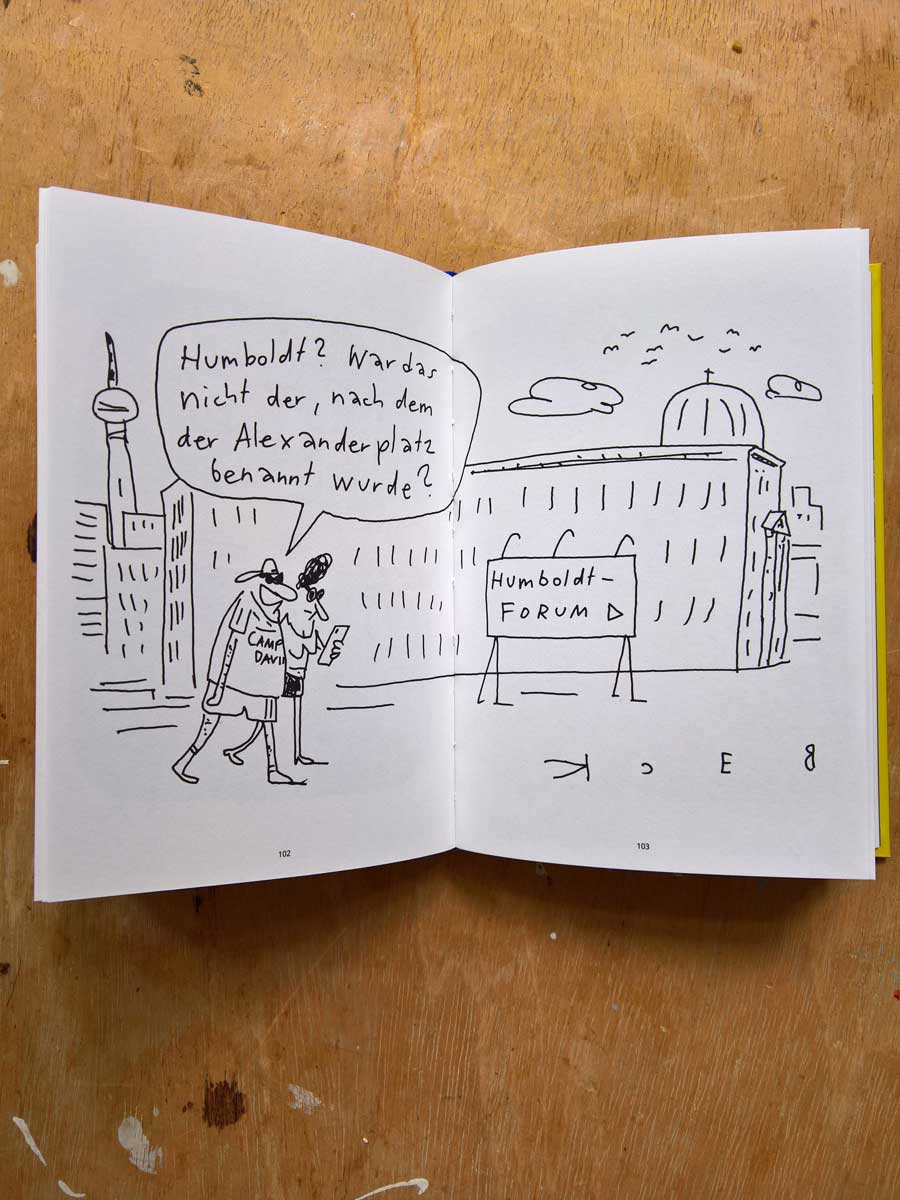 Humboldt? War das
nicht der, nach dem
der Alexanderplatz
benannt wurde?
CAMP
DAVI
Humboldt-
FORUM ▷
BECK
102
103